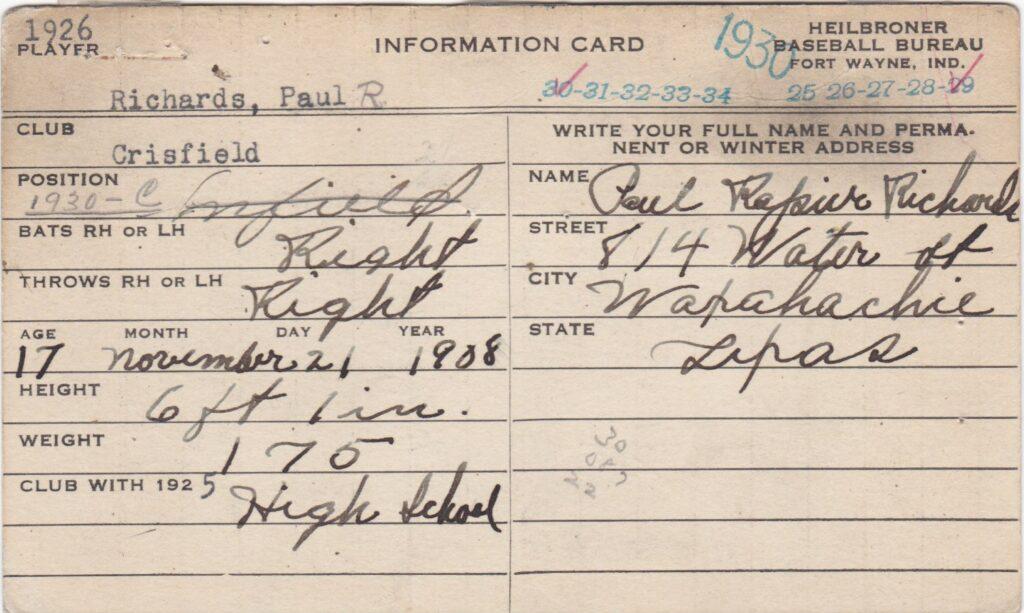 1926
PLAYER
INFORMATION CARD
1930
HEILBRONER
BASEBALL BUREAU
FORT WAYNE, IND.
Richards, Paul R
30-31-32-33-34
25 26-27-28-29
CLUB
Crisfield
WRITE YOUR FULL NAME AND PERMA-
NENT OR WINTER ADDRESS
POSITION
1930-C Infield
NAME Paul Rapier Richards
BATS RH OR LH Right
STREET 814 Water st
THROWS RH OR LH Right
CITY Waxahachie
AGE MONTH DAY YEAR
17 November 21 1908
STATE Texas
HEIGHT 6 ft 1 in.
WEIGHT 175
CLUB WITH 1925 High School